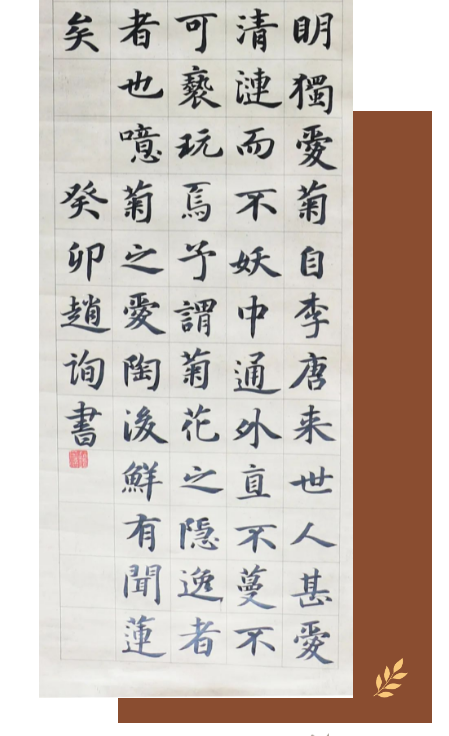 明獨愛菊自李唐来世人甚愛
清漣而不妖中通外直不蔓不
可褻玩焉予謂菊花之隐逸者
者也噫菊之愛陶後鮮有聞蓮
矣 癸卯趙詢書